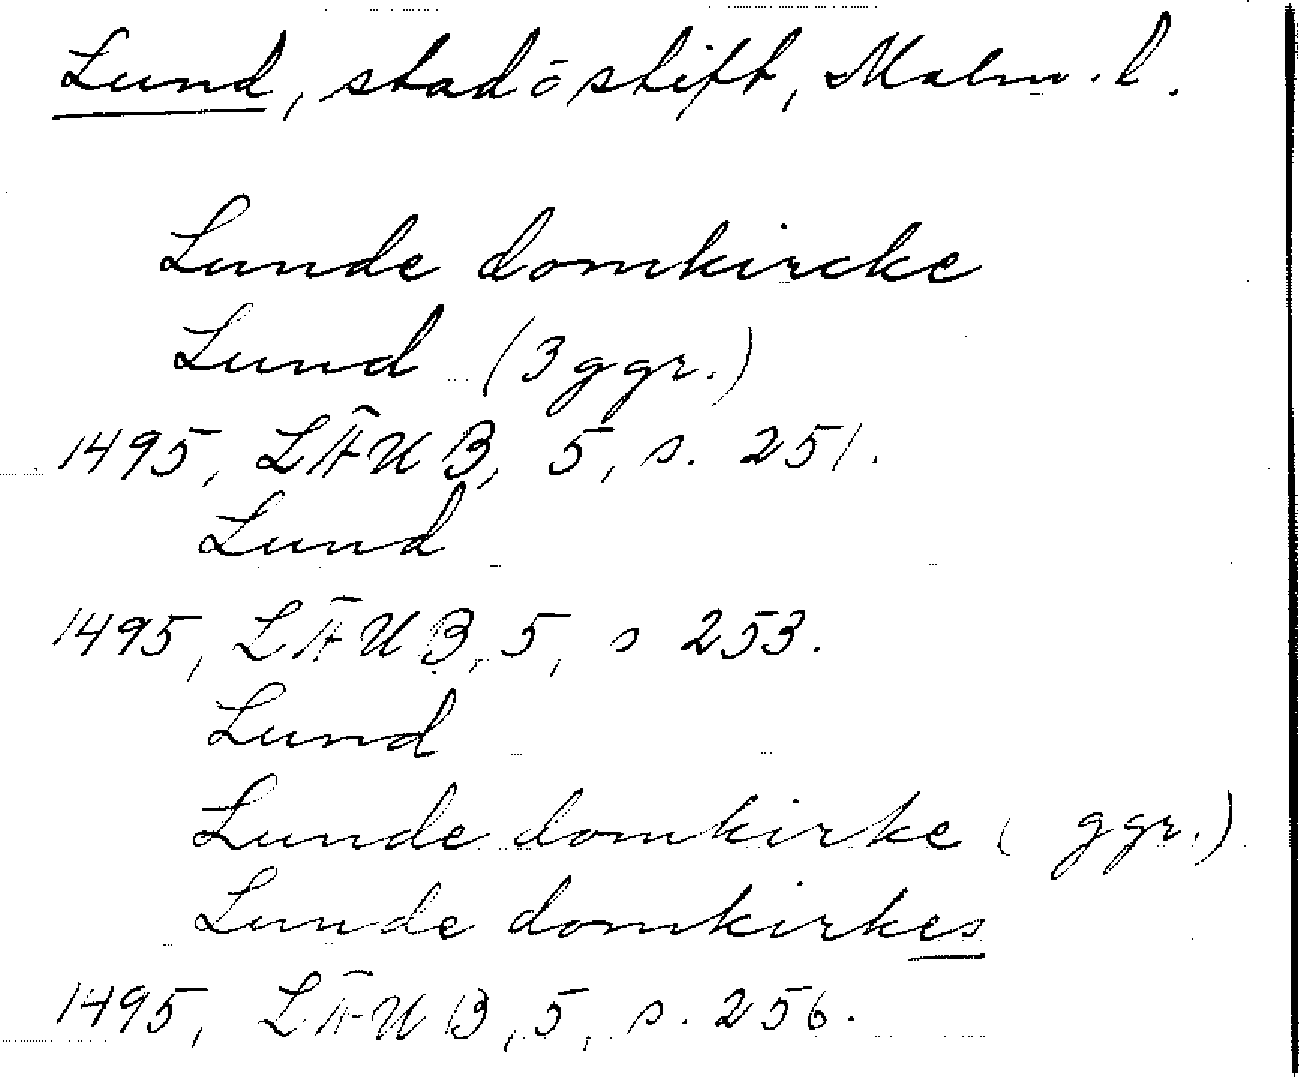 Lund, stad ö stift, Malm. l.
Lunde domkircke
Lund (3 ggr.)
1495, LÄUB, 5, s. 251.
Lund
1495, LÄUB, 5, s 253.
Lund
Lunde domkirke ( ggr.)
Lunde domkirkes
1495, LÄUB, 5, s. 256.